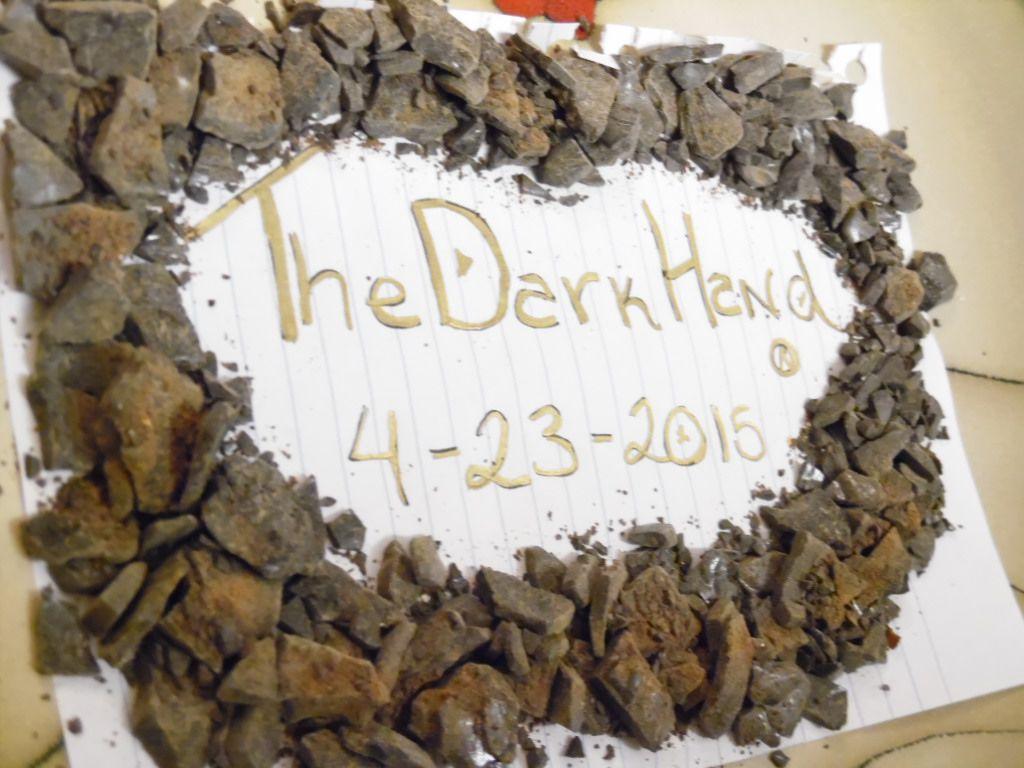 The Dark Hand
®
4-23-2015